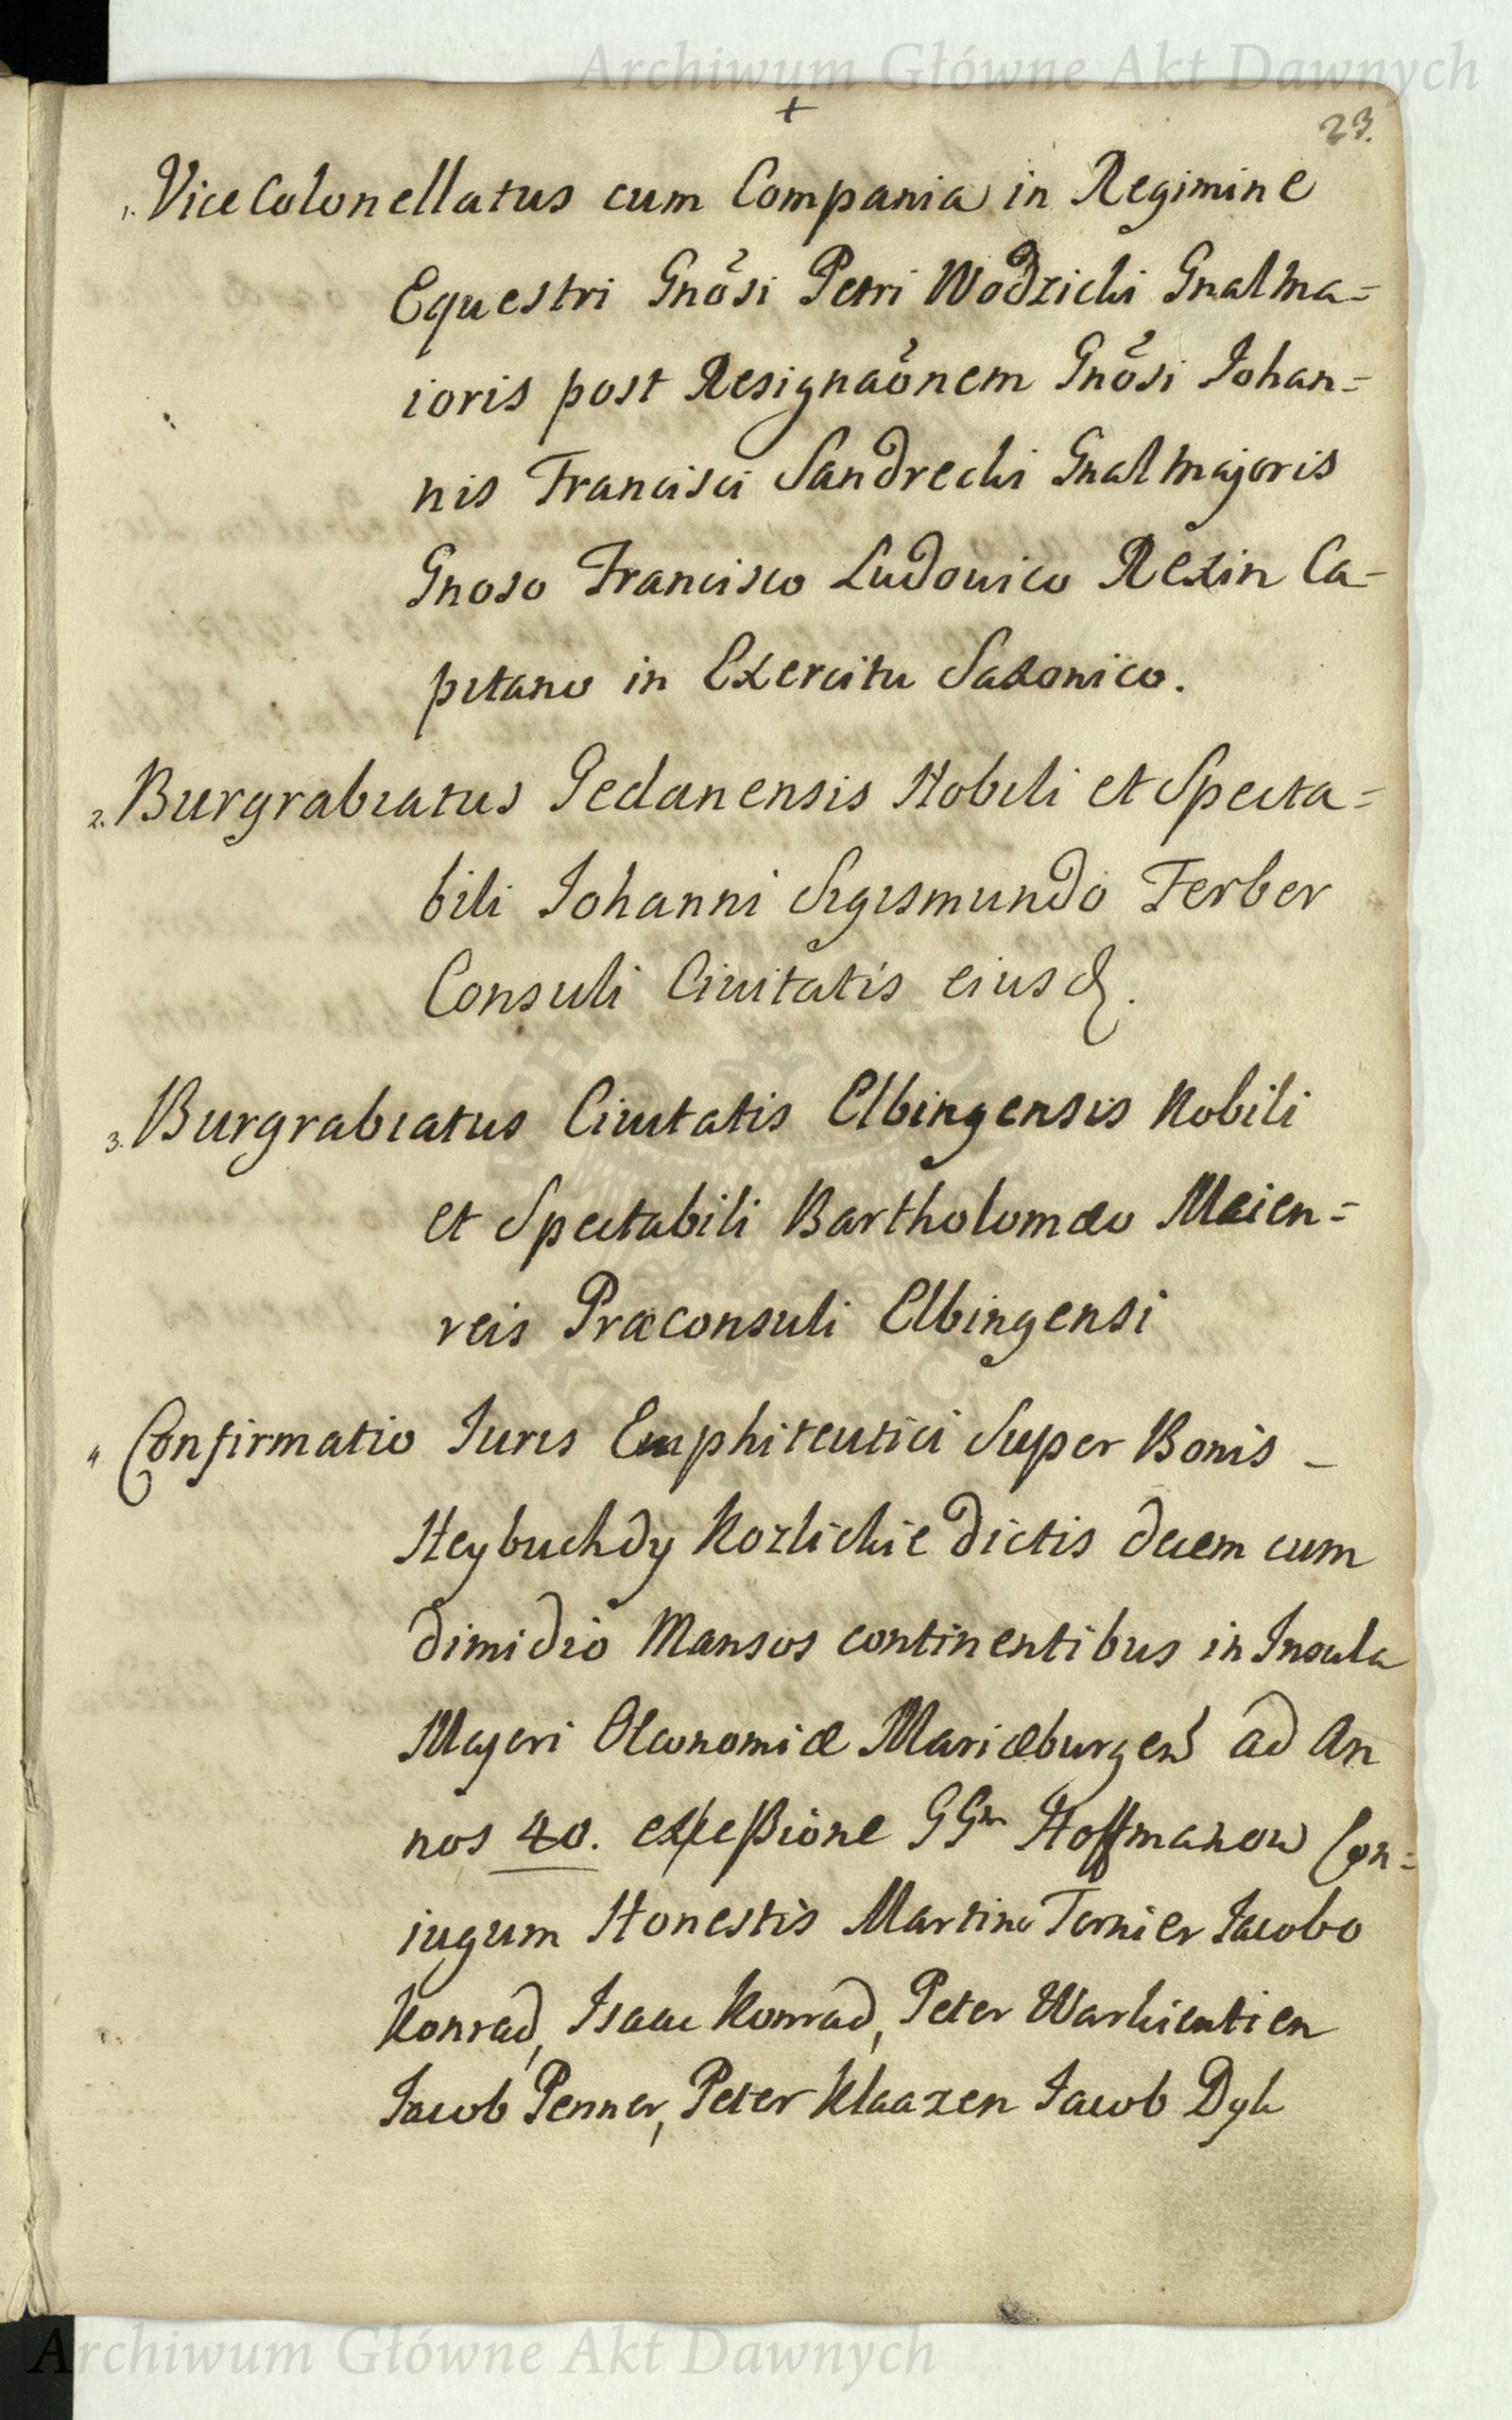 Archiwum Główne Akt Dawnych
+
23.
1. Vice Colonellatus cum Compania in Regimine
Equestri Gnosi Petri Wodzicki Gnalma=
ioris post Resignaonem Gnosi Johan=
nis Francisci Sandrecki Gnalmajoris
Gnoso Francisco Ludouico Rexin Ca=
pitano in Exercitu Saxonico.
2. Burgrabiatus Gedanensis Nobili et Specta=
bili Johanni Sigismundo Ferber
Consuli Ciuitatis eiusd.
3. Burgrabiatus Ciuitatis Elbingensis Nobili
et Spectabili Bartholomæo Meien=
reis Præconsuli Elbingensi
4 Confirmatio Iuris Emphiteutici Super Bonis -
Heybuchdy Kozlickie dictis decem cum
dimidio Mansos continentibus in Insula
Majori Oeconomiæ Mariæburgen ad An
nos 40. ex cessione GGm Hoffmanow Con=
iugum Honestis Martino Tornier Jacobo
Konrad, Isaac Konrad, Peter Warkientien
Jacob Penner, Peter Klaazen Jacob Dyk
Archiwum Główne Akt Dawnych